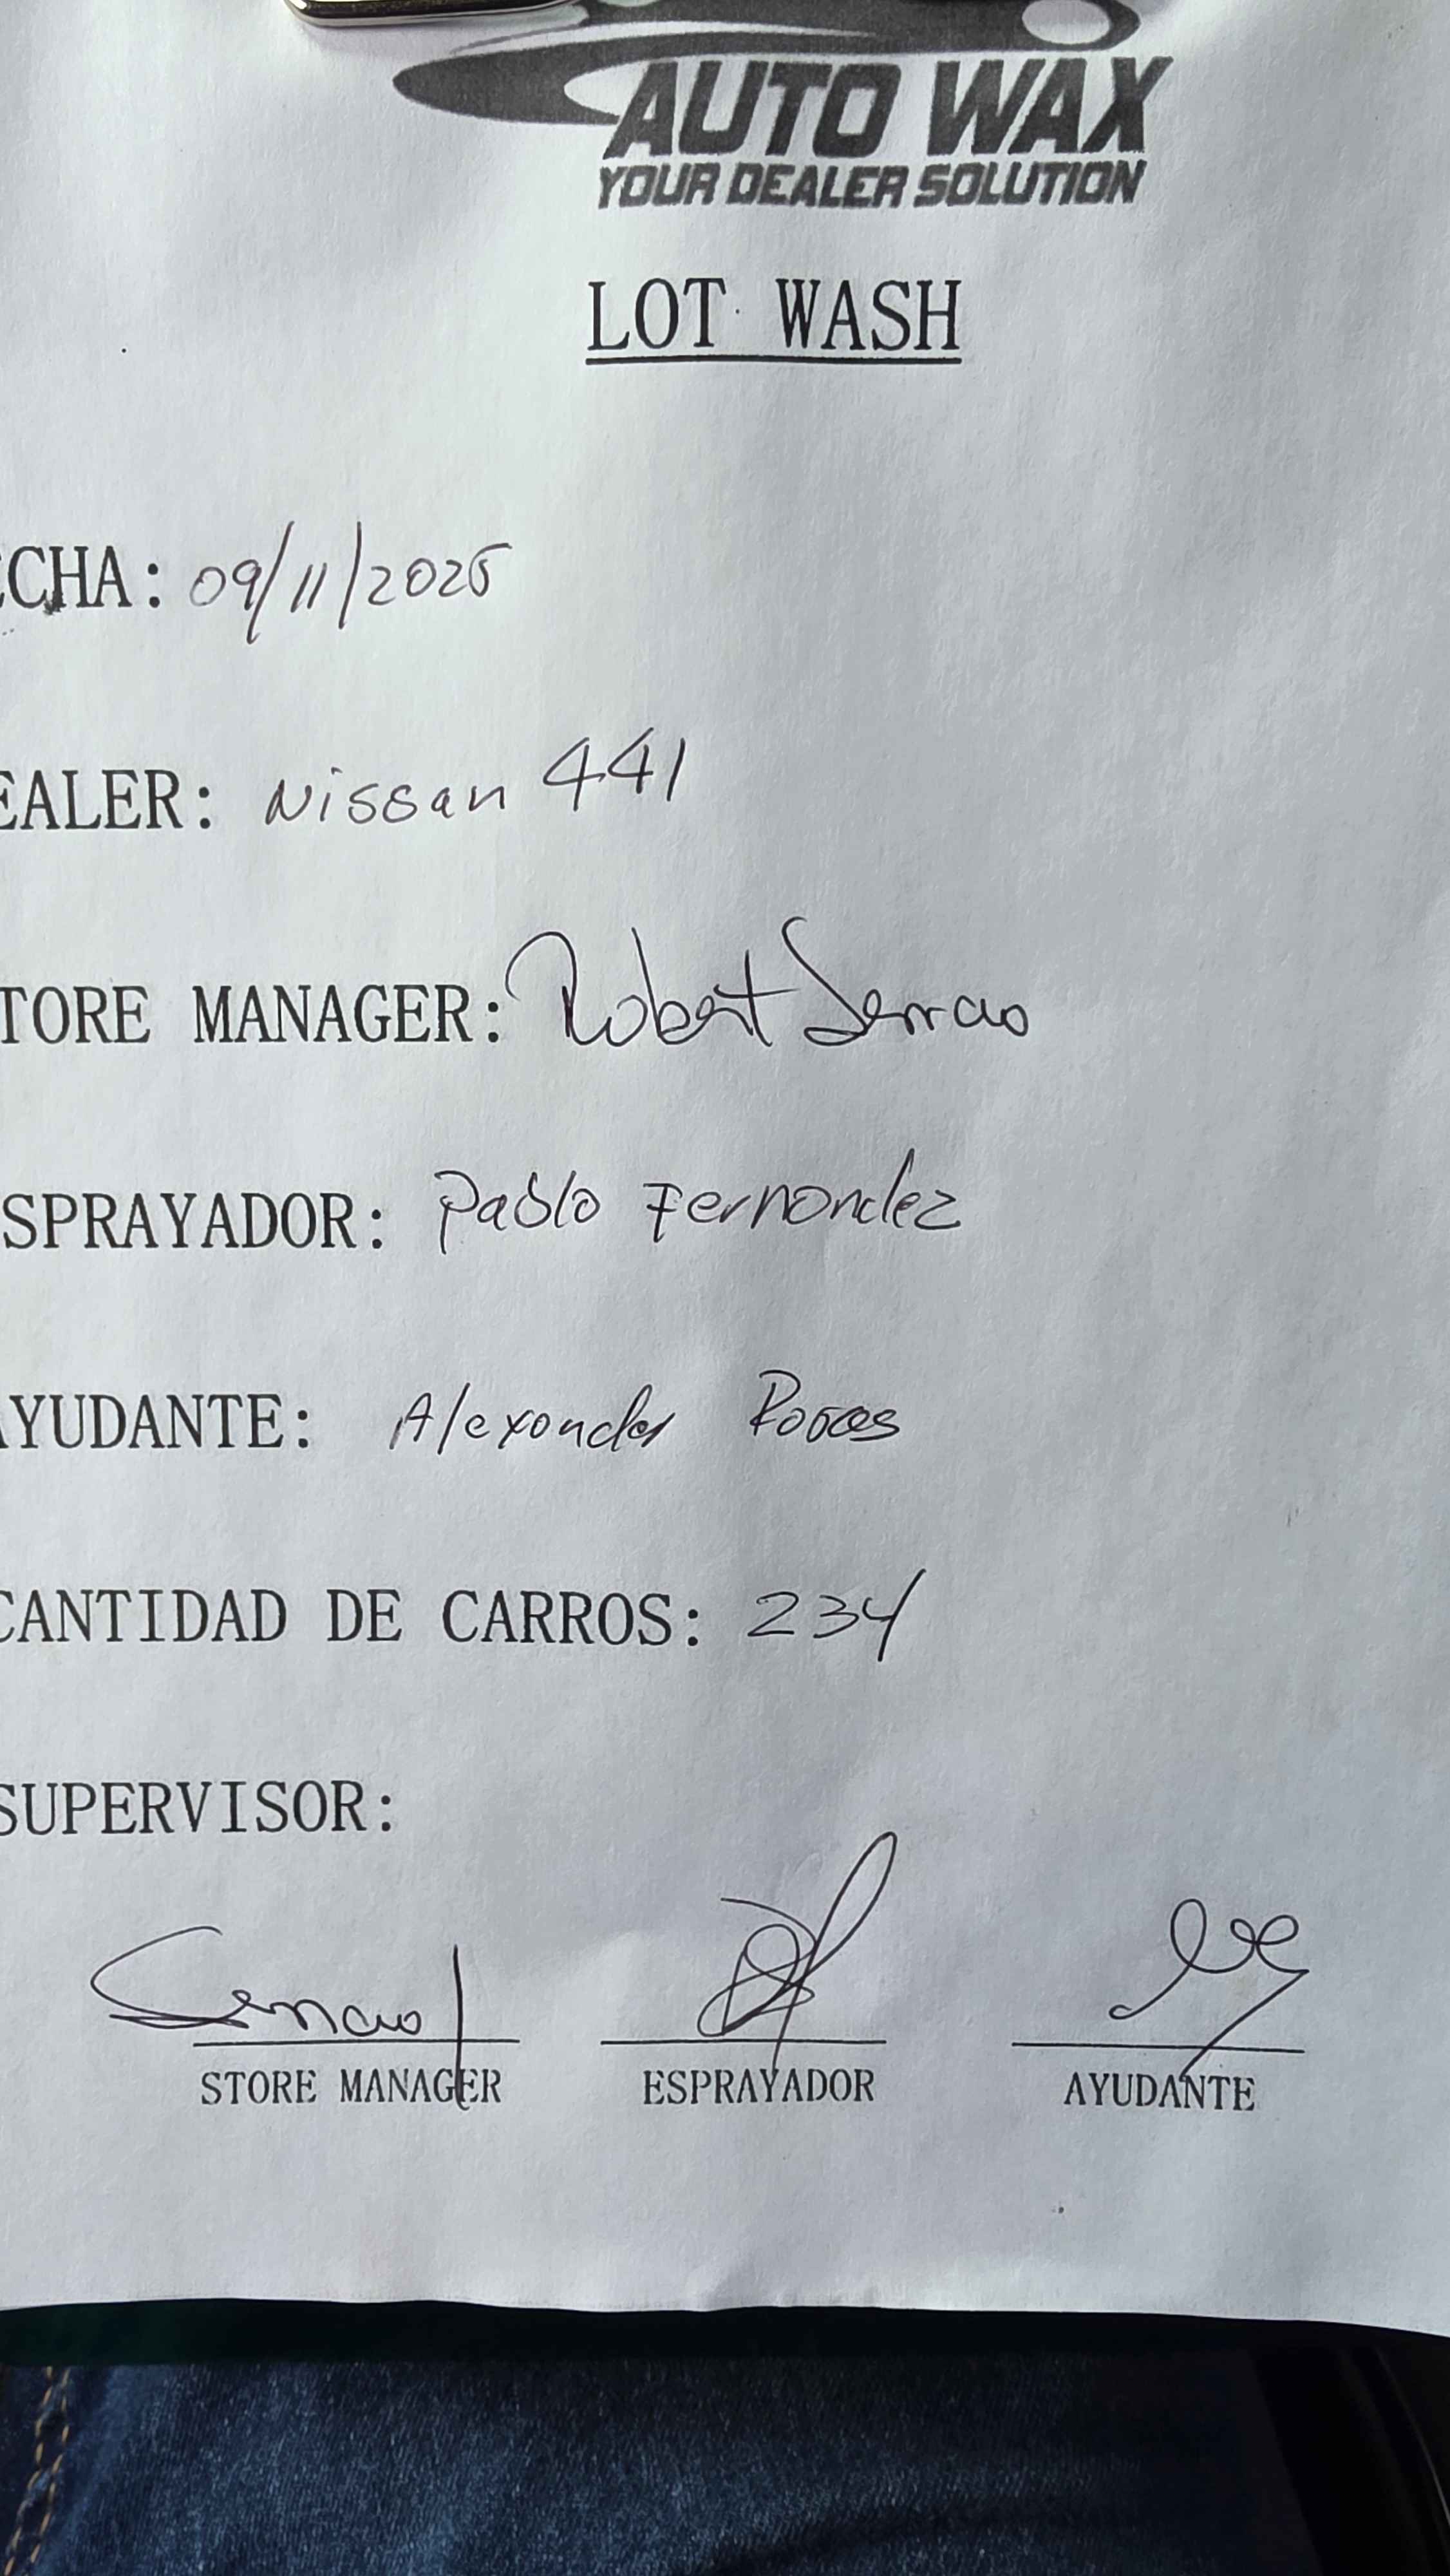 AUTO WAX
YOUR DEALER SOLUTION
LOT WASH
ECHA: 09/11/2025
EALER: Nissan 441
TORE MANAGER: Robert Serrao
SPRAYADOR: Pablo Fernandez
AYUDANTE: Alexander
CANTIDAD DE CARROS: 234
SUPERVISOR:
Serrao
STORE MANAGER ESPRAYADOR AYUDANTE